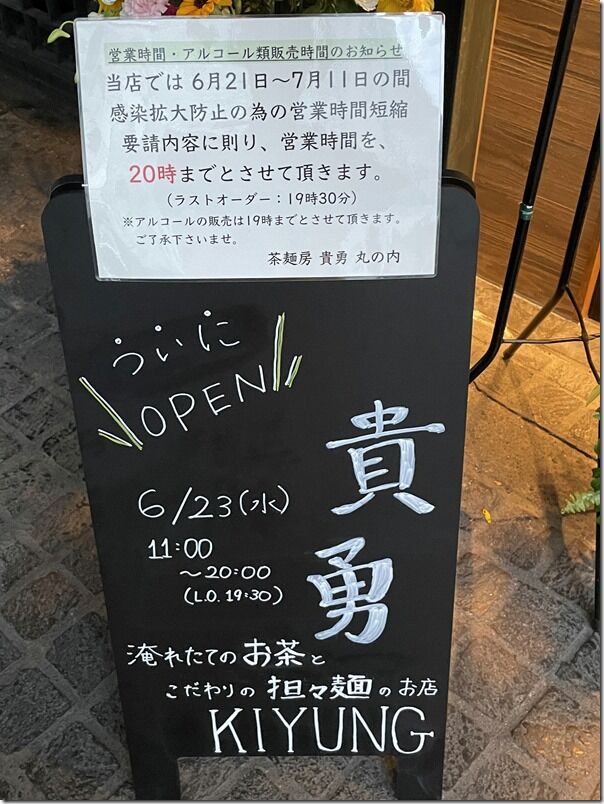 営業時間・アルコール類販売時間のお知らせ
当店では6月21日～7月11日の間
感染拡大防止の為の営業時間短縮
要請内容に則り、営業時間を、
20時までとさせて頂きます。
（ラストオーダー：19時30分）
※アルコールの販売は19時までとさせて頂きます。
ご了承下さいませ。
茶麺房 貴勇 丸の内
ついに
OPEN
貴勇
6/23(水)
11:00
～20:00
(L.O. 19:30)
淹れたてのお茶と
こだわりの担々麺のお店
KIYUNG